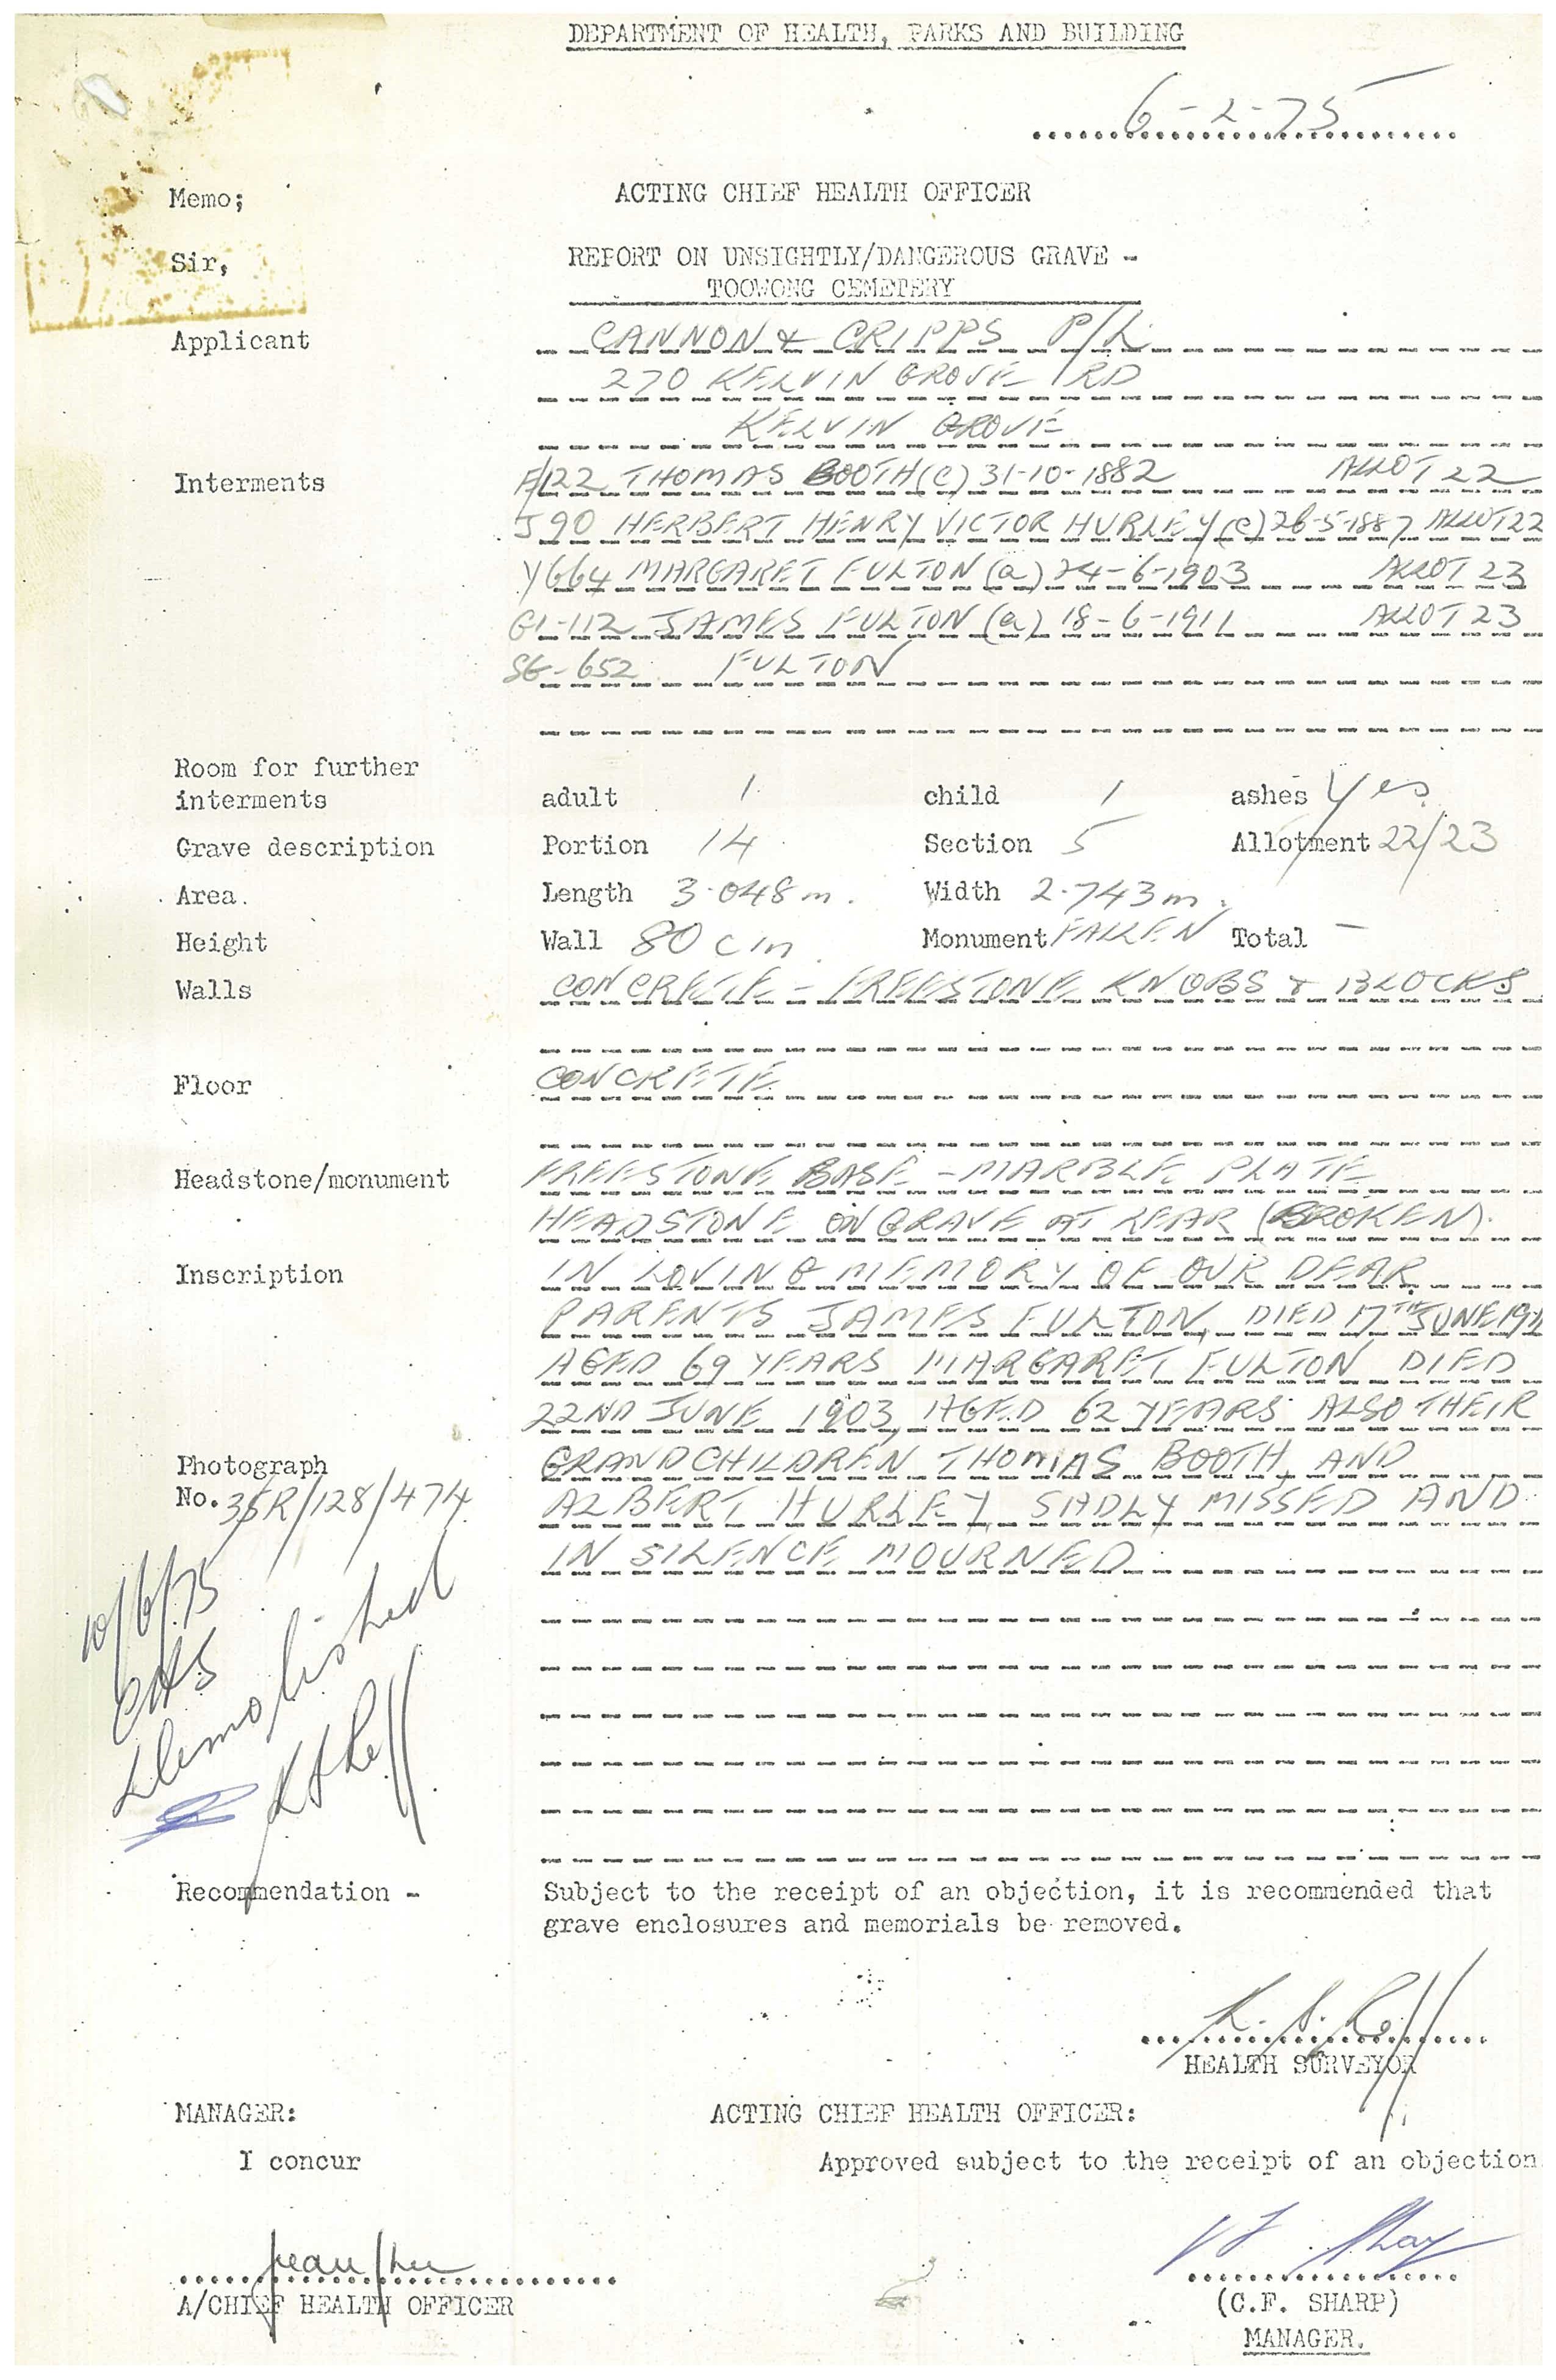 DEPARTMENT OF HEALTH, PARKS AND BUILDING
6-2-75
Memo; ACTING CHIEF HEALTH OFFICER
Sir, REPORT ON UNSIGHTLY/DANGEROUS GRAVE -
TOOWONG CEMETERY
Applicant CANNON & CRIPPS P/L
270 KELVIN GROVE RD
KELVIN GROVE
Interments F/122 THOMAS BOOTH (c) 31-10-1882 ALLOT 22
J90 HERBERT HENRY VICTOR HURLEY (c) 26-5-1887 ALLOT 22
Y664 MARGARET FULTON (a) 24-6-1903 ALLOT 23
G1-112 JAMES FULTON (a) 18-6-1911 ALLOT 23
SG-652 FULTON
Room for further
interments adult 1 child 1 ashes Yes
Grave description Portion 14 Section 5 Allotment 22/23
Area. Length 3.048m. Width 2.743m.
Height Wall 80cm. Monument FALLEN Total -
Walls CONCRETE - FREESTONE KNOBS & BLOCKS
Floor CONCRETE
Headstone/monument FREESTONE BASE - MARBLE PLATE
HEADSTONE ON GRAVE AT REAR (BROKEN).
Inscription IN LOVING MEMORY OF OUR DEAR
PARENTS JAMES FULTON, DIED 17TH JUNE 1911
AGED 69 YEARS MARGARET FULTON DIED
22ND JUNE 1903, AGED 62 YEARS ALSO THEIR
Photograph GRANDCHILDREN THOMAS BOOTH AND
No. 35R/128/474 ALBERT HURLEY SADLY MISSED AND
IN SILENCE MOURNED
10/6/75
Demolished
Recommendation - Subject to the receipt of an objection, it is recommended that
grave enclosures and memorials be removed.
HEALTH SURVEYOR
MANAGER: ACTING CHIEF HEALTH OFFICER:
I concur Approved subject to the receipt of an objection
A/CHIEF HEALTH OFFICER (C.F. SHARP)
MANAGER.